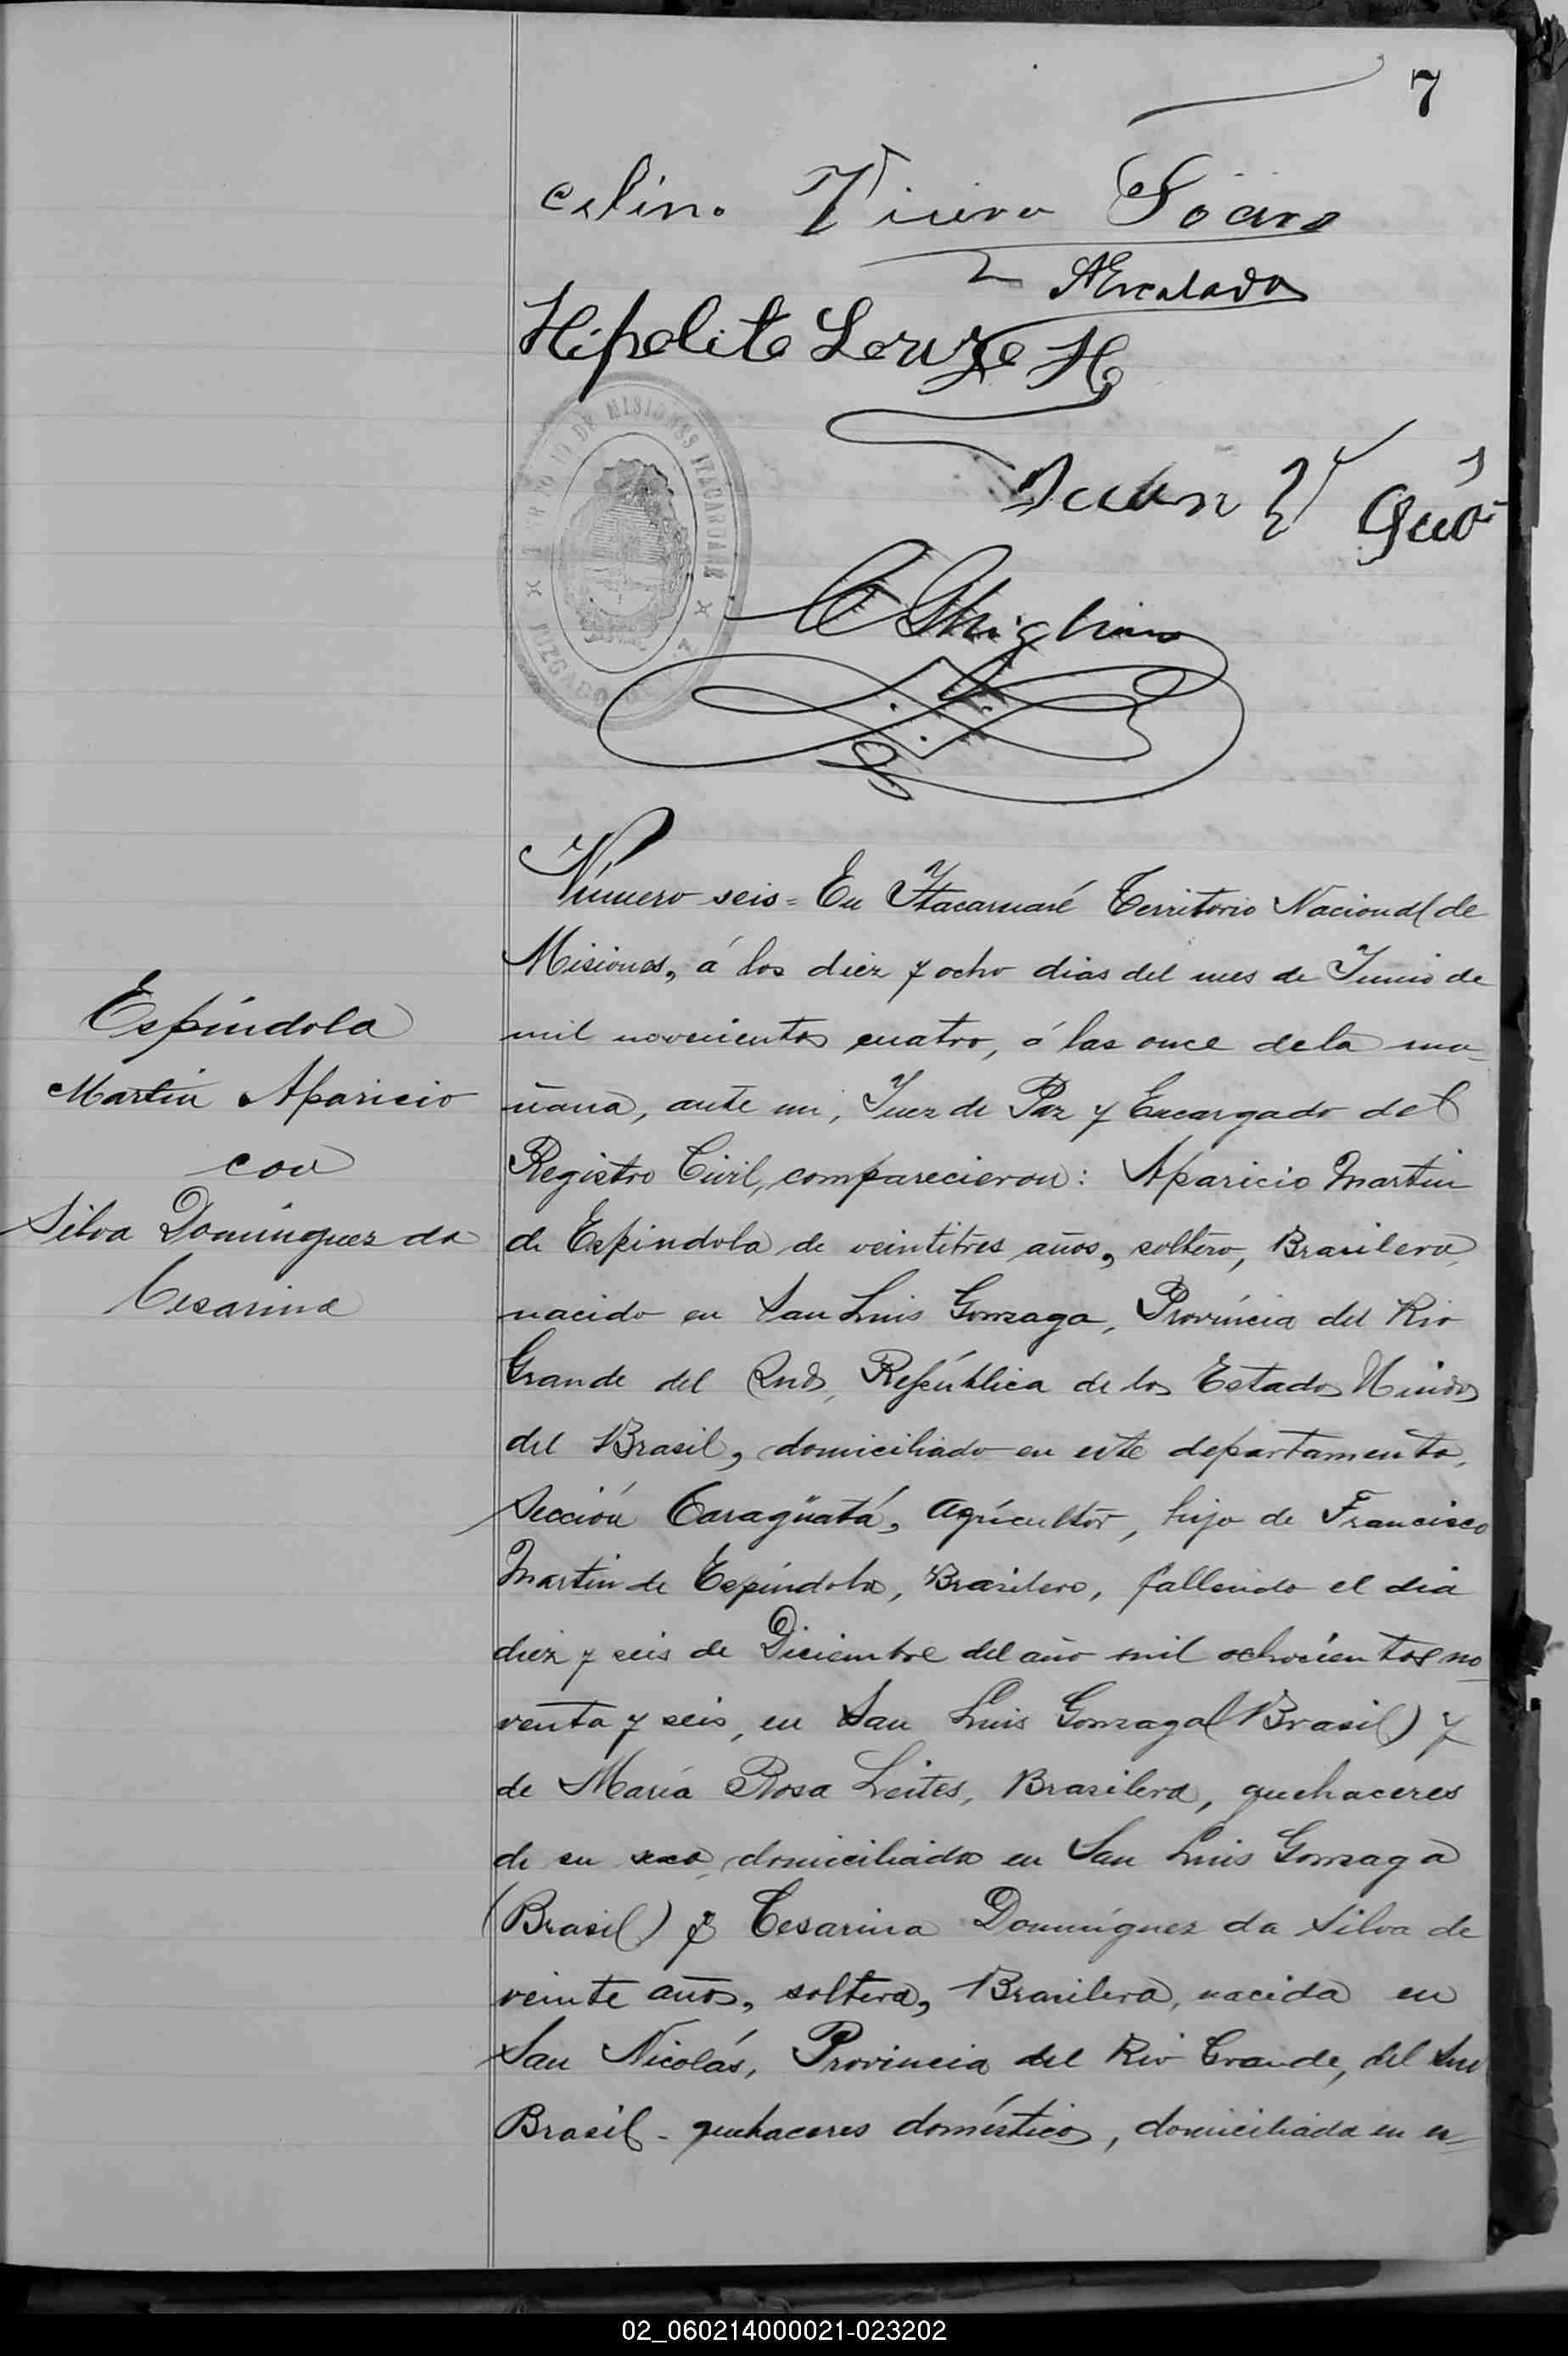 7
Hipolito
Juan
TERRITORIO DE MISIONES ITACARUARÉ
JUZGADO DE PAZ
C Ghigliano
Número seis = En Itacaruaré Territorio Nacional de
Misiones, á los diez y ocho dias del mes de Junio de
mil novecientos cuatro, á las once de la ma-
ñana, ante mi, Juez de Paz y Encargado del
Registro Civil, comparecieron: Aparicio Martin
de Espindola de veintitres años, soltero, Brasilero,
nacido en San Luis Gonzaga, Província del Rio
Grande del Sud, República de los Estados Unidos
del Brasil, domiciliado en este departamento,
Sección Caragüatá, agrícultor, hijo de Francisco
Martin de Espíndola, Brasilero, fallecido el dia
diez y seis de Diciembre del año mil ochocientos no-
venta y seis, en San Luis Gonzaga (Brasil) y
de María Rosa Leites, Brasilera, quehaceres
de su sexo, domiciliada en San Luis Gonzaga
(Brasil) y Cesarina Domínguez da Silva de
veinte años, soltera, Brasilera, nacida en
San Nicolás, Provincia del Rio Grande, del Sud
Brasil - quehaceres domésticos, domiciliada en es=
Espíndola
Martin Aparicio
con
Silva Domínguez da
Cesarina
02_060214000021-023202